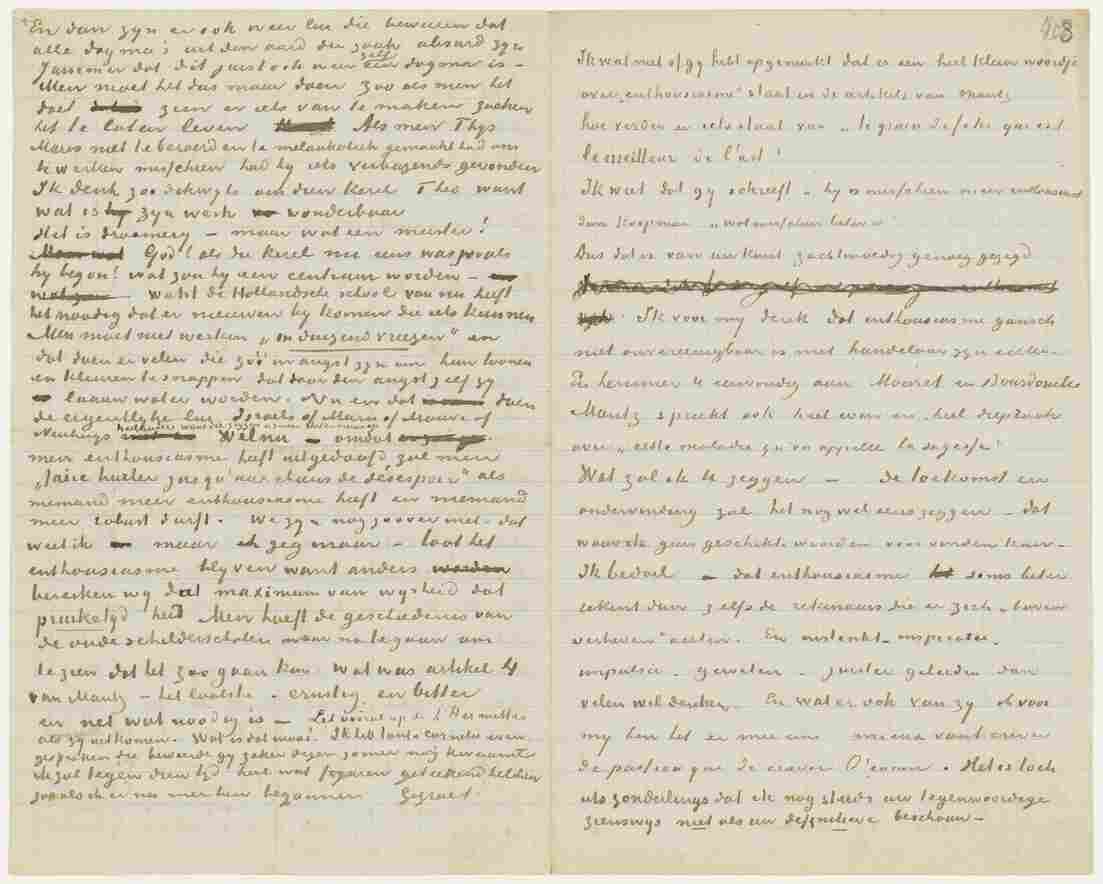 En dan zyn er ook weer lui die beweren dat
alle dogma's uit den aard der zaak absurd zyn
Jammer dat dit juist ook weer zelf een dogma is –
Men moet het dus maar doen zoo als men het
doet zien er iets van te maken zoeken
het te laten leven Als men Thys
Maris niet te beroerd en te melankoliek gemaakt had om
te werken misschien had hy iets verbazends gevonden
Ik denk zoo dikwyls om dien kerel Theo want
wat is zyn werk wonderbaar
Het is droomery – maar wat een meester!
God! als die kerel nu eens was zooals
hy begon! wat zou hy een centrum worden –
want de Hollandsche school van nu heeft
het noodig dat er nieuwen by komen die iets kunnen
Men moet niet werken „in duizend vreezen" en
dat doen er velen die zóó in angst zyn om hun toonen
en kleuren te snappen dat door den angst zelf zy
laauw water worden. Nu en dat doen
de eigentlyke lui Israels of Maris of Mauve of
Neuhuys
Welnu – omdat
men enthousiasme heeft uitgedoofd zal men
„faire hurler jusqu'aux chiens de désespoir" als
niemand meer enthousiasme heeft en niemand
meer robust durft. We zyn nog zoover niet – dat
weet ik maar ik zeg maar – laat het
enthousiasme blyven want anders
bereiken wy dat maximum van wysheid dat
pruiketyd heet Men hoeft de geschiedenis van
de oude schilderscholen maar na te gaan om
te zien dat het zoo gaan kan. Wat was artikel 4
van Mantz – het laatste – ernstig en bitter
en net wat noodig is – Let vooral op de L'Hermittes
als zy uitkomen. Wat is dat mooi. Ik heb tante Cornelie even
gesproken die beweerde gy zoudt dezen zomer nog kwaamt
ik zal tegen dien tyd heel wat figuren geteekend hebben
zooals ik er nu meer heb begonnen Gegroet.
Ik wat niet of gy hebt opgemerkt dat er een heel klein woordje
over „enthousiasme" staat in de artikels van Mantz
hoe verder er iets staat van „le grain de folie qui est
le meilleur de l'art!
Ik weet dat gy schreeft „hy is misschien meer enthousiast
dan koopman
Dus dat is van uw kant zachtmoedig genoeg gezegd
Ik voor my denk dat enthousiasme gansch
niet onvereenigbaar is met handelaar zyn echter.
Ik herinner U eenvoudig aan
Mantz spreekt ook heel waar en heel diepzaak
over „cette maladie qu'on appelle la sagesse!
Wat zal ik U zeggen – de toekomst en
ondervinding zal het nog wel eens zeggen – dat
woorden
Ik bedoel – dat enthousiasme soms beter
rekent dan zelfs de rekenaars die er zich „boven
verheven" achten. En instinkt – inspiratie –
impulsie – geweten – juister geleiden dan
velen wel denken. En wat er ook van zy ik voor
my ben het er mee eens mieux vaut crever
de passion que de crever d'ennui. Het is toch
iets zonderlings dat ik nog steeds uw tegenwoordige
zienswys niet als uw definitieve beschouw –